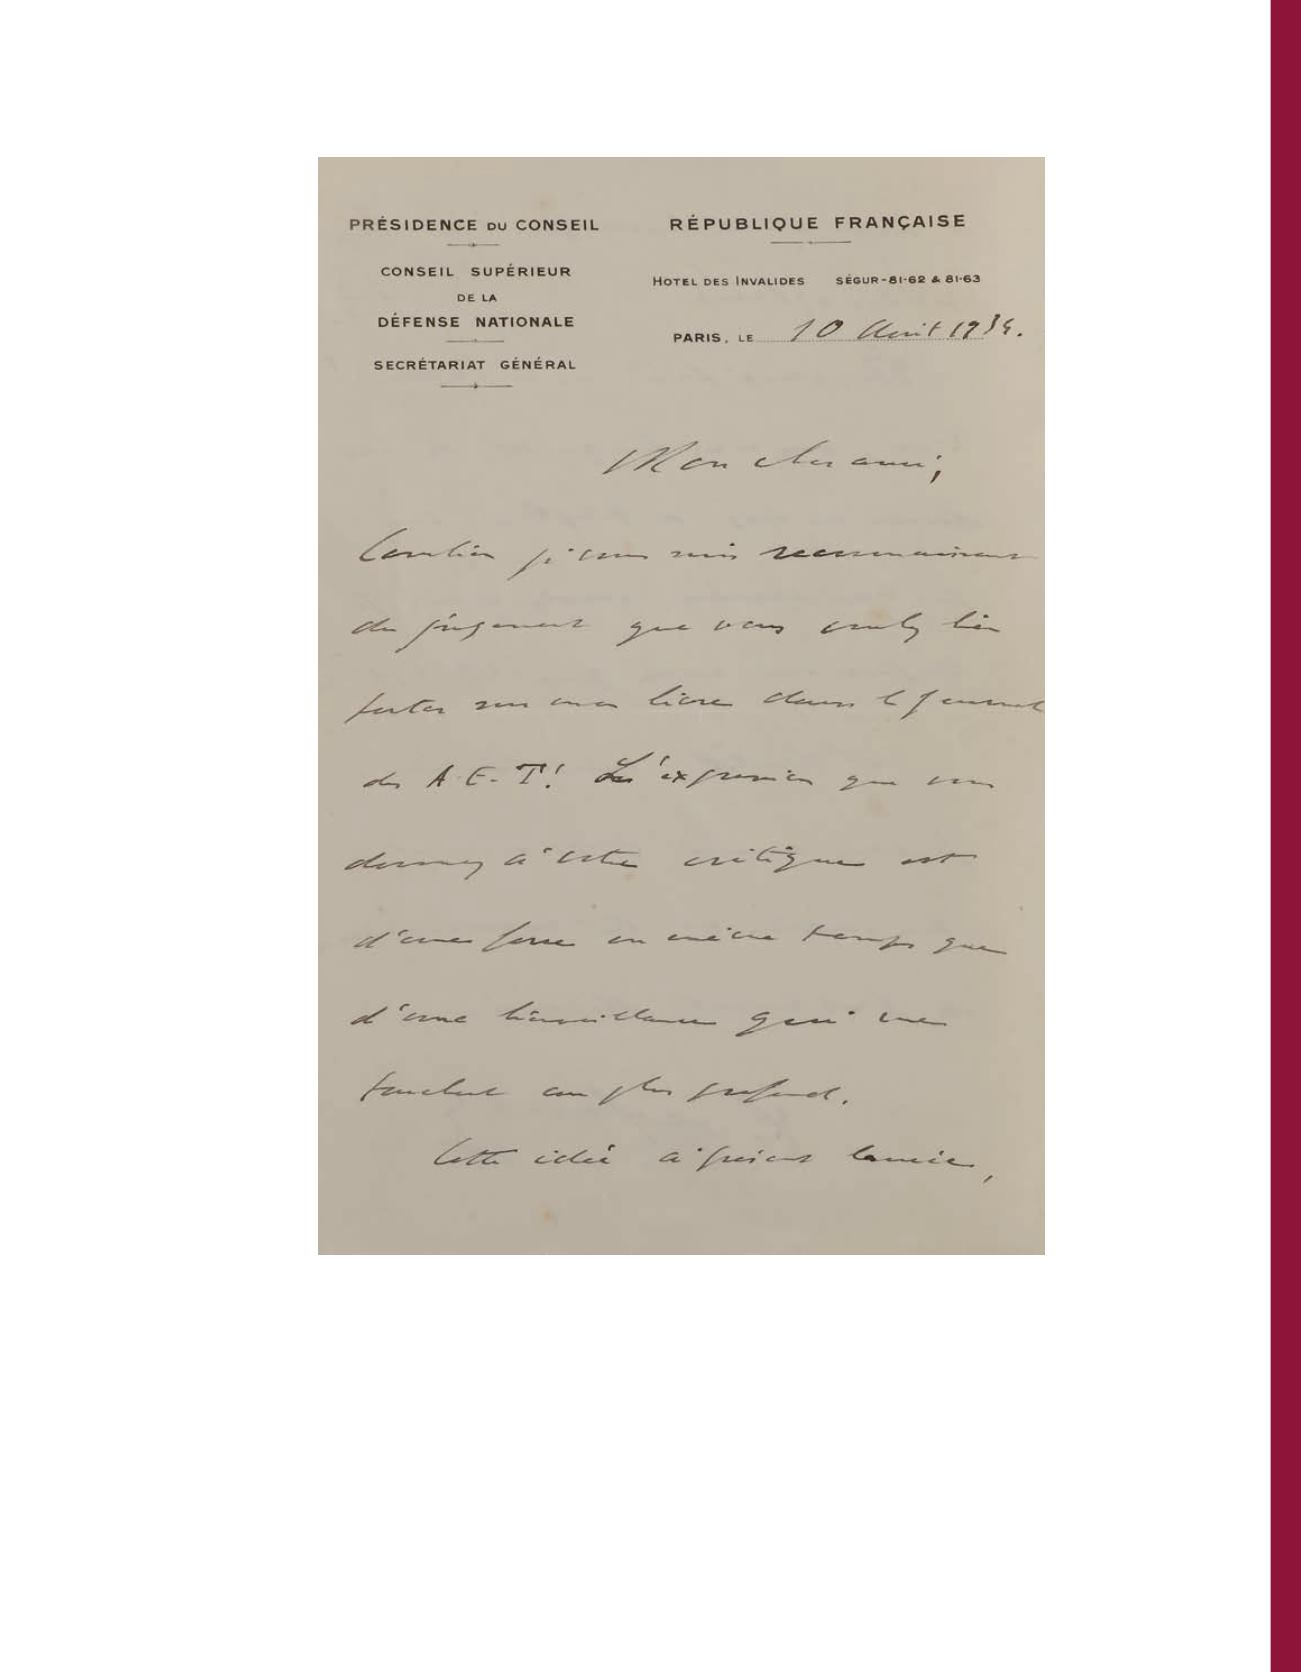 PRÉSIDENCE DU CONSEIL
CONSEIL SUPÉRIEUR
DE LA
DÉFENSE NATIONALE
SECRÉTARIAT GÉNÉRAL
RÉPUBLIQUE FRANÇAISE
HOTEL DES INVALIDES SÉGUR-81-62 & 81-63
PARIS, LE 10 Août 1934.
Mon cher ami,
Combien je vous suis reconnaissant
du jugement que vous voulez bien
porter sur mon livre dans le Journal
des A.E.T! L'expression que vous
donnez à votre critique est
d'une force en même temps que
d'une bienveillance qui me
touchent au plus profond.
Cette idée à présent lancée,